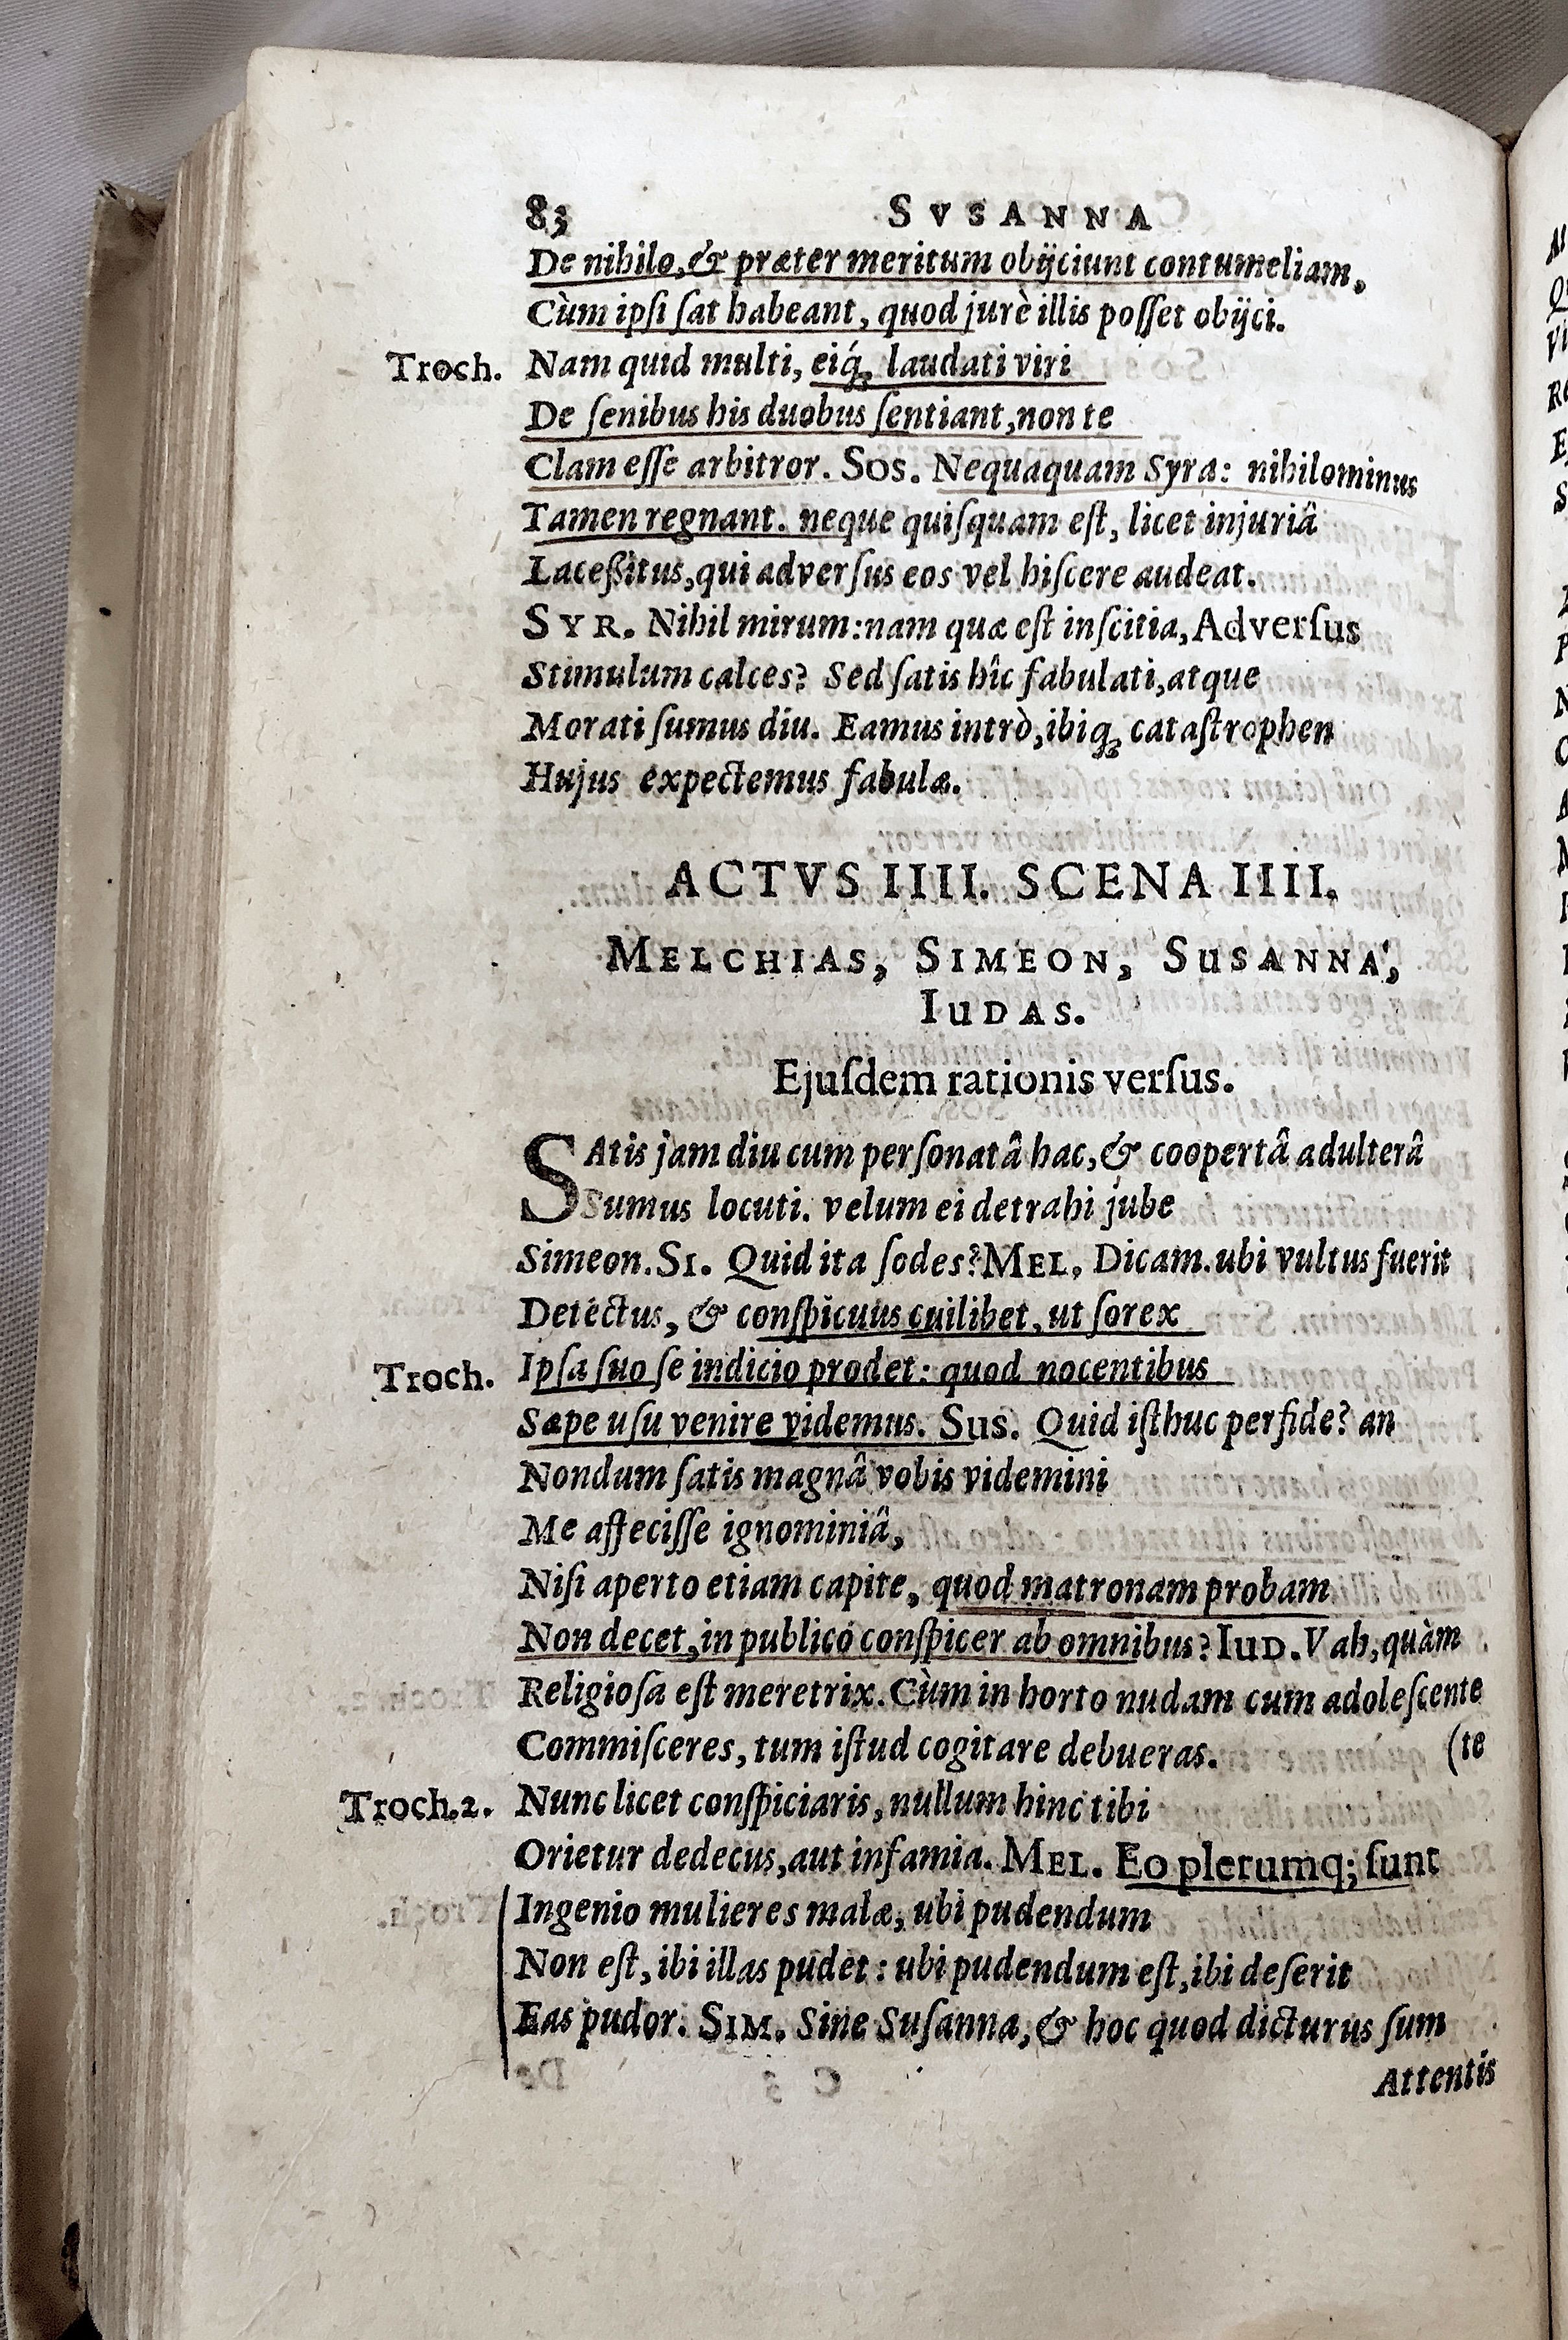 83 SVSANNA
De nihilo, & præter meritum obijciunt contumeliam,
Cùm ipſi ſat habeant, quod jurè illis poſſet obijci.
Troch. Nam quid multi, eiq́; laudati viri
De ſenibus his duobus ſentiant, non te
Clam eſſe arbitror. Sos. Nequaquam Syra: nihilominus
Tamen regnant. neque quiſquam eſt, licet injuriâ
Laceßitus, qui adverſus eos vel hiſcere audeat.
SYR. Nihil mirum: nam quæ eſt inſcitia, Adverſus
Stimulum calces? Sed ſatis hîc fabulati, atque
Morati ſumus diu. Eamus intrò, ibiq; cataſtrophen
Hujus expectemus fabulæ.
ACTVS IIII. SCENA IIII.
MELCHIAS, SIMEON, SuSANNA,
IuDAS.
Ejuſdem rationis verſus.
SAtis jam diu cum perſonatâ hac, & coopertâ adulterâ
Sumus locuti. velum ei detrahi jube
Simeon. SI. Quid ita ſodes? MEL, Dicam. ubi vultus fuerit
Detectus, & conſpicuus cuilibet, ut ſorex
Troch. Ipſa ſuo ſe indicio prodet: quod nocentibus
Sæpe uſu venire videmus. Sus. Quid iſthuc perfide? an
Nondum ſatis magnâ vobis videmini
Me affeciſſe ignominiâ,
Niſi aperto etiam capite, quod matronam probam
Non decet, in publico conſpicer ab omnibus? IuD. Vah, quàm
Religioſa eſt meretrix. Cùm in horto nudam cum adoleſcente
Commiſceres, tum iſtud cogitare debueras. (te
Troch. 2. Nunc licet conſpiciaris, nullum hinc tibi
Orietur dedecus, aut infamia. MEL. Eo plerumq; ſunt
Ingenio mulieres malæ, ubi pudendum
Non eſt, ibi illas pudet: ubi pudendum eſt, ibi deſerit
Eas pudor. SIM. Sine Suſanna, & hoc quod dicturus ſum
Attentis